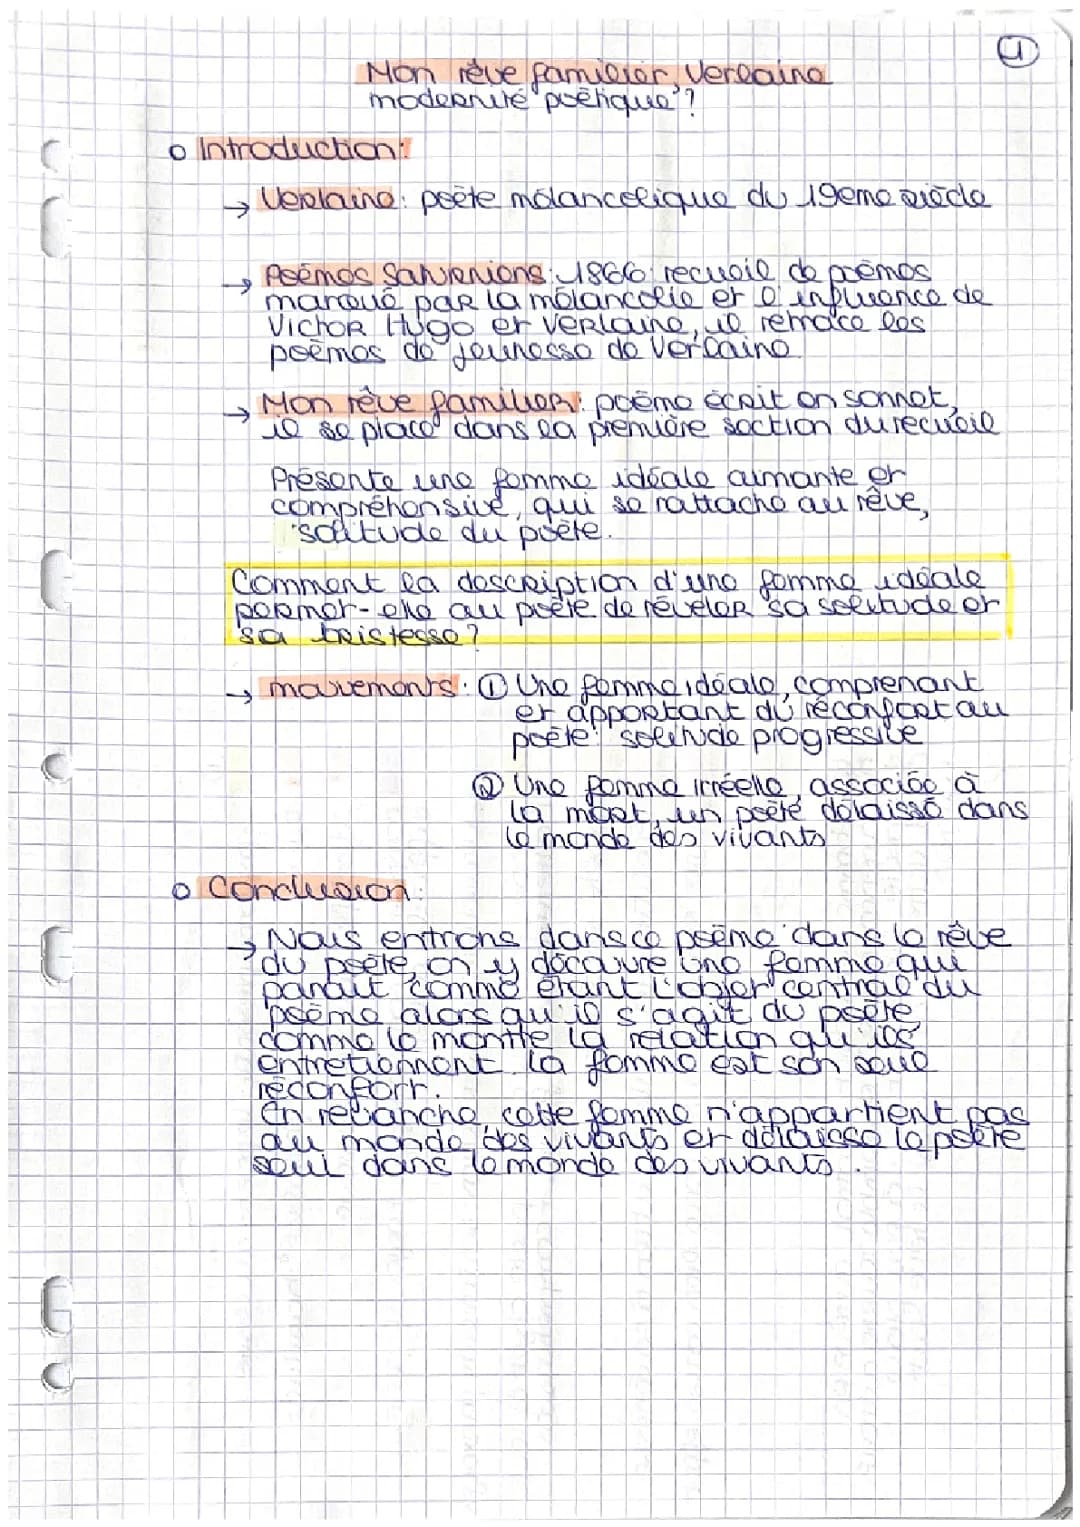 Mon rêve familier, Verlaine
modernité poétique ?
o Introduction:
→ Verlaine: poëte mélancolique du 19eme siècle
→ Poèmes Saturniens: 1866: recueil de poèmes
marqué par la mélancolie et l'influence de
Victor Hugo et Verlaine, il retrace les
poèmes de jeunesse de Verlaine
→ Mon rêve familier: poème écrit en sonnet,
il se place dans la première section du recueil
Présente une femme idéale aimante et
compréhensive, qui se rattache au rêve,
solitude du poète.
Comment la description d'une femme idéale
permet-elle au poète de révéler sa solitude et
sa tristesse ?
→ mouvements: ① Une femme idéale, comprenant
et apportant du réconfort au
poète: solitude progressive
② Une femme irréelle, associée à
la mort, un poète délaissé dans
le monde des vivants
o Conclusion:
→ Nous entrons dans ce poème dans le rêve
du poète, on y découvre une femme qui
parait comme étant l'objet central du
poème alors qu'il s'agit du poète,
comme le montre la relation qu'ils
entretiennent. La femme est son seul
réconfort.
En revanche, cette femme n'appartient pas
au monde des vivants et délaisse le poète
seul dans le monde des vivants.